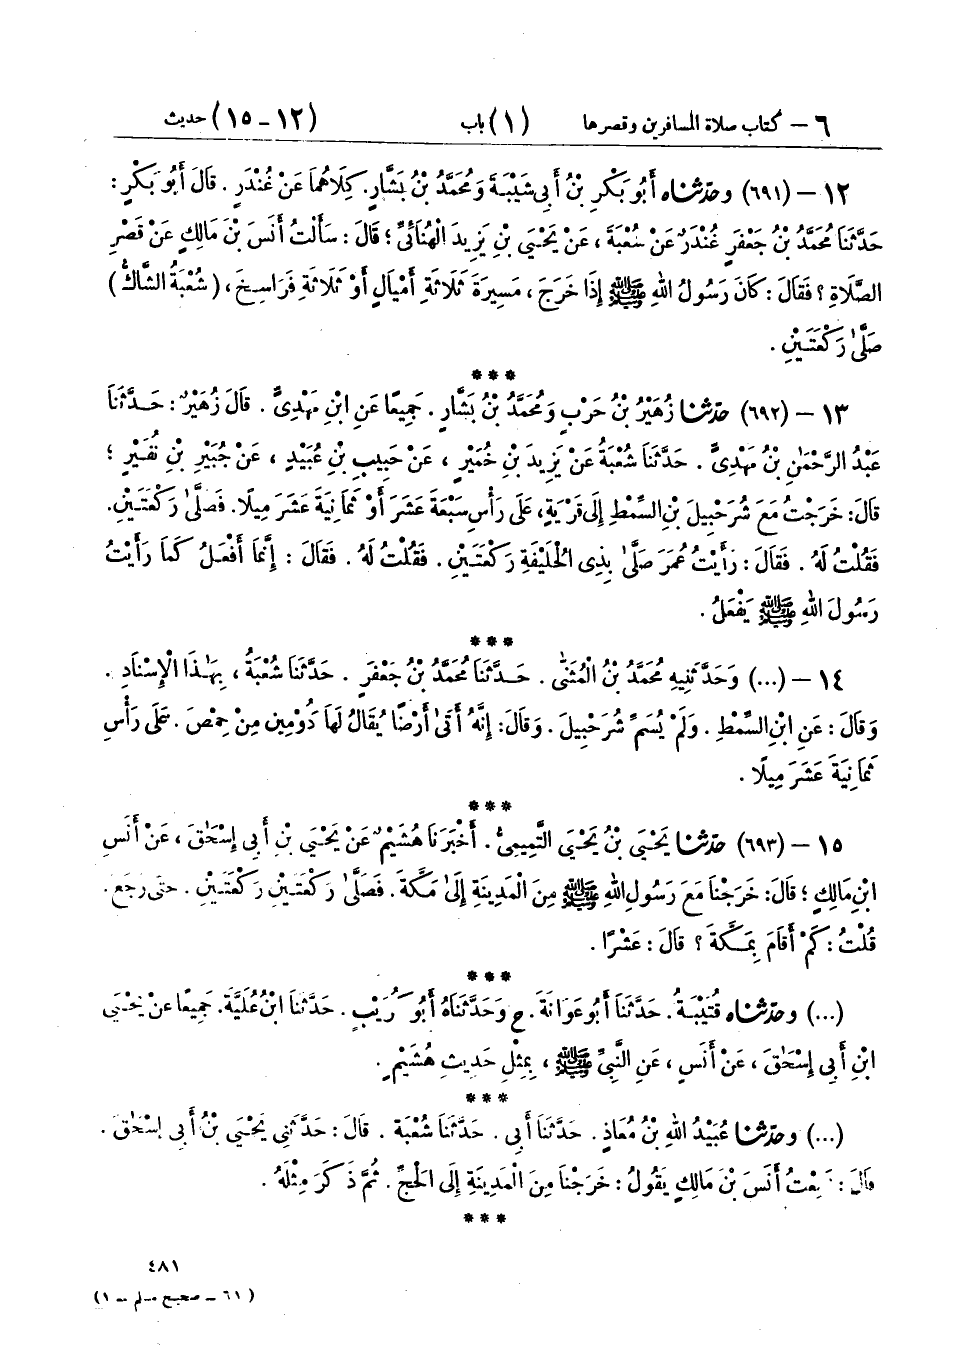 ٦ – كتاب صلاة المسافرين وقصرها (١) باب (١٢ – ١٥) حديث
١٢ – (٦٩١) وحدثناه أَبُو بَكْرِ بْنُ أَبِي شَيْبَةَ وَمُحَمَّدُ بْنُ بَشَّارٍ. كِلَاهُمَا عَنْ غُنْدَرٍ. قَالَ أَبُو بَكْرٍ:
حَدَّثَنَا مُحَمَّدُ بْنُ جَعْفَرٍ غُنْدَرٌ عَنْ شُعْبَةَ، عَنْ يَحْيَىٰ بْنِ يَزِيدَ الْهُنَائِيِّ؛ قَالَ: سَأَلْتُ أَنَسَ بْنَ مَالِكٍ عَنْ قَصْرِ
الصَّلَاةِ؟ فَقَالَ: كَانَ رَسُولُ اللهِ ﷺ إِذَا خَرَجَ، مَسِيرَةَ ثَلَاثَةِ أَمْيَالٍ أَوْ ثَلَاثَةِ فَرَاسِخَ، (شُعْبَةُ الشَّاكُّ)
صَلَّىٰ رَكْعَتَيْنِ.
***
١٣ – (٦٩٢) حدثنا زُهَيْرُ بْنُ حَرْبٍ وَمُحَمَّدُ بْنُ بَشَّارٍ. جَمِيعًا عَنِ ابْنِ مَهْدِيٍّ. قَالَ زُهَيْرٌ: حَدَّثَنَا
عَبْدُ الرَّحْمَٰنِ بْنُ مَهْدِيٍّ. حَدَّثَنَا شُعْبَةُ عَنْ يَزِيدَ بْنِ خُمَيْرٍ، عَنْ حَبِيبِ بْنِ عُبَيْدٍ، عَنْ جُبَيْرِ بْنِ نُفَيْرٍ؛
قَالَ: خَرَجْتُ مَعَ شُرَحْبِيلَ بْنِ السِّمْطِ إِلَىٰ قَرْيَةٍ، عَلَىٰ رَأْسِ سَبْعَةَ عَشَرَ أَوْ ثَمَانِيَةَ عَشَرَ مِيلًا. فَصَلَّىٰ رَكْعَتَيْنِ.
فَقُلْتُ لَهُ. فَقَالَ: رَأَيْتُ عُمَرَ صَلَّىٰ بِذِي الْحُلَيْفَةِ رَكْعَتَيْنِ. فَقُلْتُ لَهُ. فَقَالَ: إِنَّمَا أَفْعَلُ كَمَا رَأَيْتُ
رَسُولَ اللهِ ﷺ يَفْعَلُ.
***
١٤ – (...) وَحَدَّثَنِيهِ مُحَمَّدُ بْنُ الْمُثَنَّىٰ. حَدَّثَنَا مُحَمَّدُ بْنُ جَعْفَرٍ. حَدَّثَنَا شُعْبَةُ، بِهَٰذَا الْإِسْنَادِ.
وَقَالَ: عَنِ ابْنِ السِّمْطِ. وَلَمْ يُسَمِّ شُرَحْبِيلَ. وَقَالَ: إِنَّهُ أَتَىٰ أَرْضًا يُقَالُ لَهَا دُومِينَ مِنْ حِمْصَ. عَلَىٰ رَأْسِ
ثَمَانِيَةَ عَشَرَ مِيلًا.
***
١٥ – (٦٩٣) حدثنا يَحْيَىٰ بْنُ يَحْيَىٰ التَّمِيمِيُّ. أَخْبَرَنَا هُشَيْمٌ عَنْ يَحْيَىٰ بْنِ أَبِي إِسْحَٰقَ، عَنْ أَنَسِ
ابْنِ مَالِكٍ؛ قَالَ: خَرَجْنَا مَعَ رَسُولِ اللهِ ﷺ مِنَ الْمَدِينَةِ إِلَىٰ مَكَّةَ. فَصَلَّىٰ رَكْعَتَيْنِ رَكْعَتَيْنِ. حَتَّىٰ رَجَعَ.
قُلْتُ: كَمْ أَقَامَ بِمَكَّةَ؟ قَالَ: عَشْرًا.
***
(...) وحدثناه قُتَيْبَةُ. حَدَّثَنَا أَبُو عَوَانَةَ. ح وَحَدَّثَنَاهُ أَبُو كُرَيْبٍ. حَدَّثَنَا ابْنُ عُلَيَّةَ. جَمِيعًا عَنْ يَحْيَىٰ
ابْنِ أَبِي إِسْحَٰقَ، عَنْ أَنَسٍ، عَنِ النَّبِيِّ ﷺ، بِمِثْلِ حَدِيثِ هُشَيْمٍ.
***
(...) وحدثنا عُبَيْدُ اللهِ بْنُ مُعَاذٍ. حَدَّثَنَا أَبِي. حَدَّثَنَا شُعْبَةُ. قَالَ: حَدَّثَنِي يَحْيَىٰ بْنُ أَبِي إِسْحَٰقَ.
قَالَ: سَمِعْتُ أَنَسَ بْنَ مَالِكٍ يَقُولُ: خَرَجْنَا مِنَ الْمَدِينَةِ إِلَى الْحَجِّ. ثُمَّ ذَكَرَ مِثْلَهُ.
***
٤٨١
(٦١ – صحيح مسلم – ١)